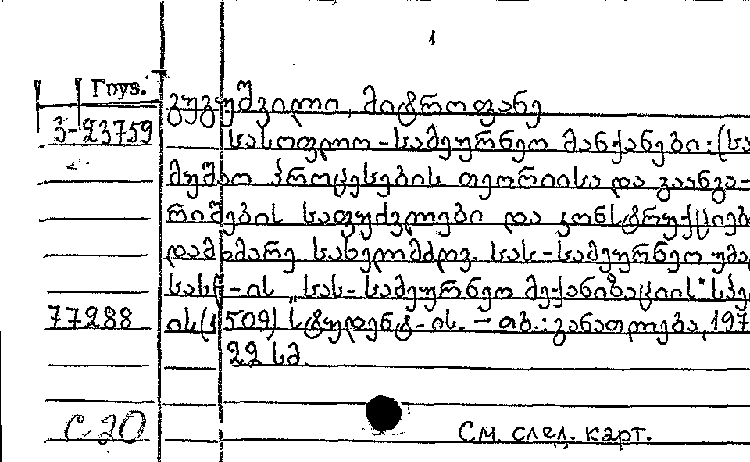 1
Груз.
გუგუშვილი, მიტროფანე
3-23759
სასოფლო-სამეურნეო მანქანები: (სა
მუშაო პროცესების თეორიისა და გაანგა-
რიშების საფუძვლები და კონსტრუქციებ
დამხმარე სახელმძღვ. სას-სამეურნეო უმა
სასწ-ის „სას-სამეურნეო მექანიზაციის" სპე
77288
ის (1509) სტუდენტ-ის. – თბ.: განათლება, 197
22 სმ.
С 20
См. след. карт.